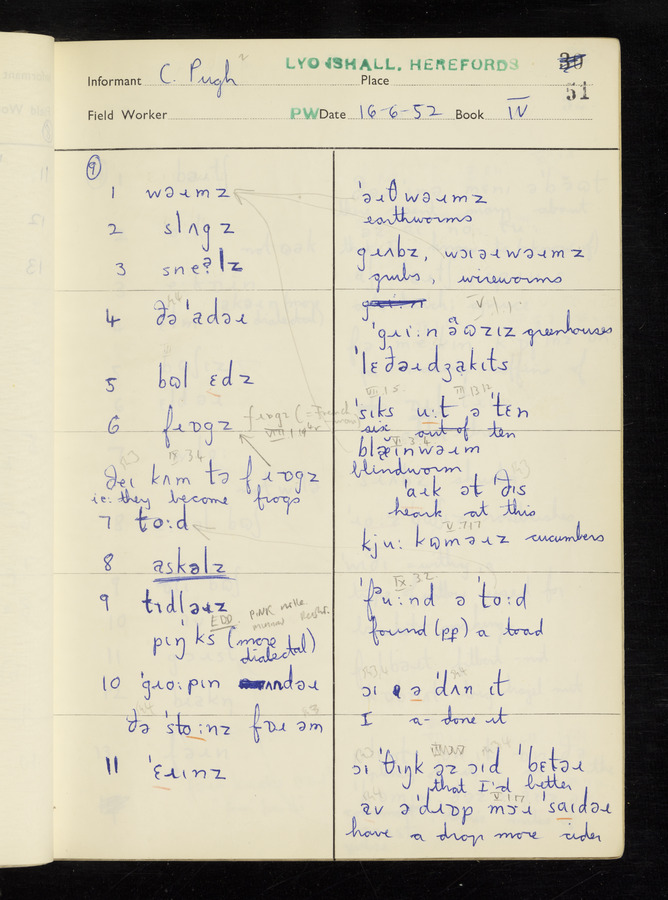 LYONSHALL, HEREFORDS
30
51
Informant C. Pugh Place
Field Worker PW Date 16-6-52 Book IV
9
1 wəɹmz
2 slʌgz
3 sneːlz
4 ðə ˈadəɹ
5 bɷl ɛdz
6 fɹɒgz
ðeɪ kʌm tə fɹɒgz
ie: they become frogs
7 toːd
8 askəlz
9 tɪdləɹz
EDD. PINK
pɪŋks (more
dialectal)
10 ˈgɹoːpɪn ʌndəɹ
ðə ˈstoːnz fəɹ əm
11 ˈɛɹɪnz
ˈəɹθwəɹmz
earthworms
gɹʌbz, wɔɪəɹwəɹmz
grubs, wireworms
ˈgɹiːn ãɷzɪz greenhouses
ˈlɛðəɹdʒakɪts
ˈsɪks uːt ə ˈtɛn
six out of ten
blæinwəɹm
blindworm
ˈaɹk ət ˈðɪs
heark at this
V.7.17
kjuːkɷməɹz cucumbers
IX.3.2
ˈfəuːnd ə ˈtoːd
found (pp) a toad
ɔɪ ə ˈdʌn ɪt
I a-done it
ɔɪ ˈθɪŋk əz ɔɪd ˈbɛtəɹ
that I'd better
əv ə ˈdɹɒp mɔːɹ ˈsaɪdəɹ
have a drop more cider